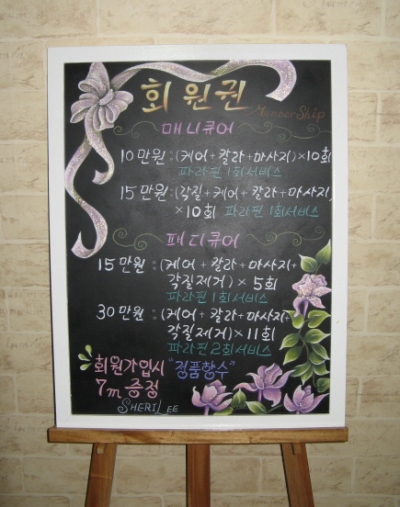 회원권
Member Ship
매니큐어
10만원:(케어+칼라+마사지)×10회
파라핀 1회서비스
15만원:(각질+케어+칼라+마사지)
×10회 파라핀 1회서비스
패디큐어
15만원:(케어+칼라+마사지+
각질제거)×5회
파라핀 1회서비스
30만원:(케어+칼라+마사지+
각질제거)×11회
파라핀 2회서비스
회원가입시 "정품향수"
7ml 증정
SHERILEE